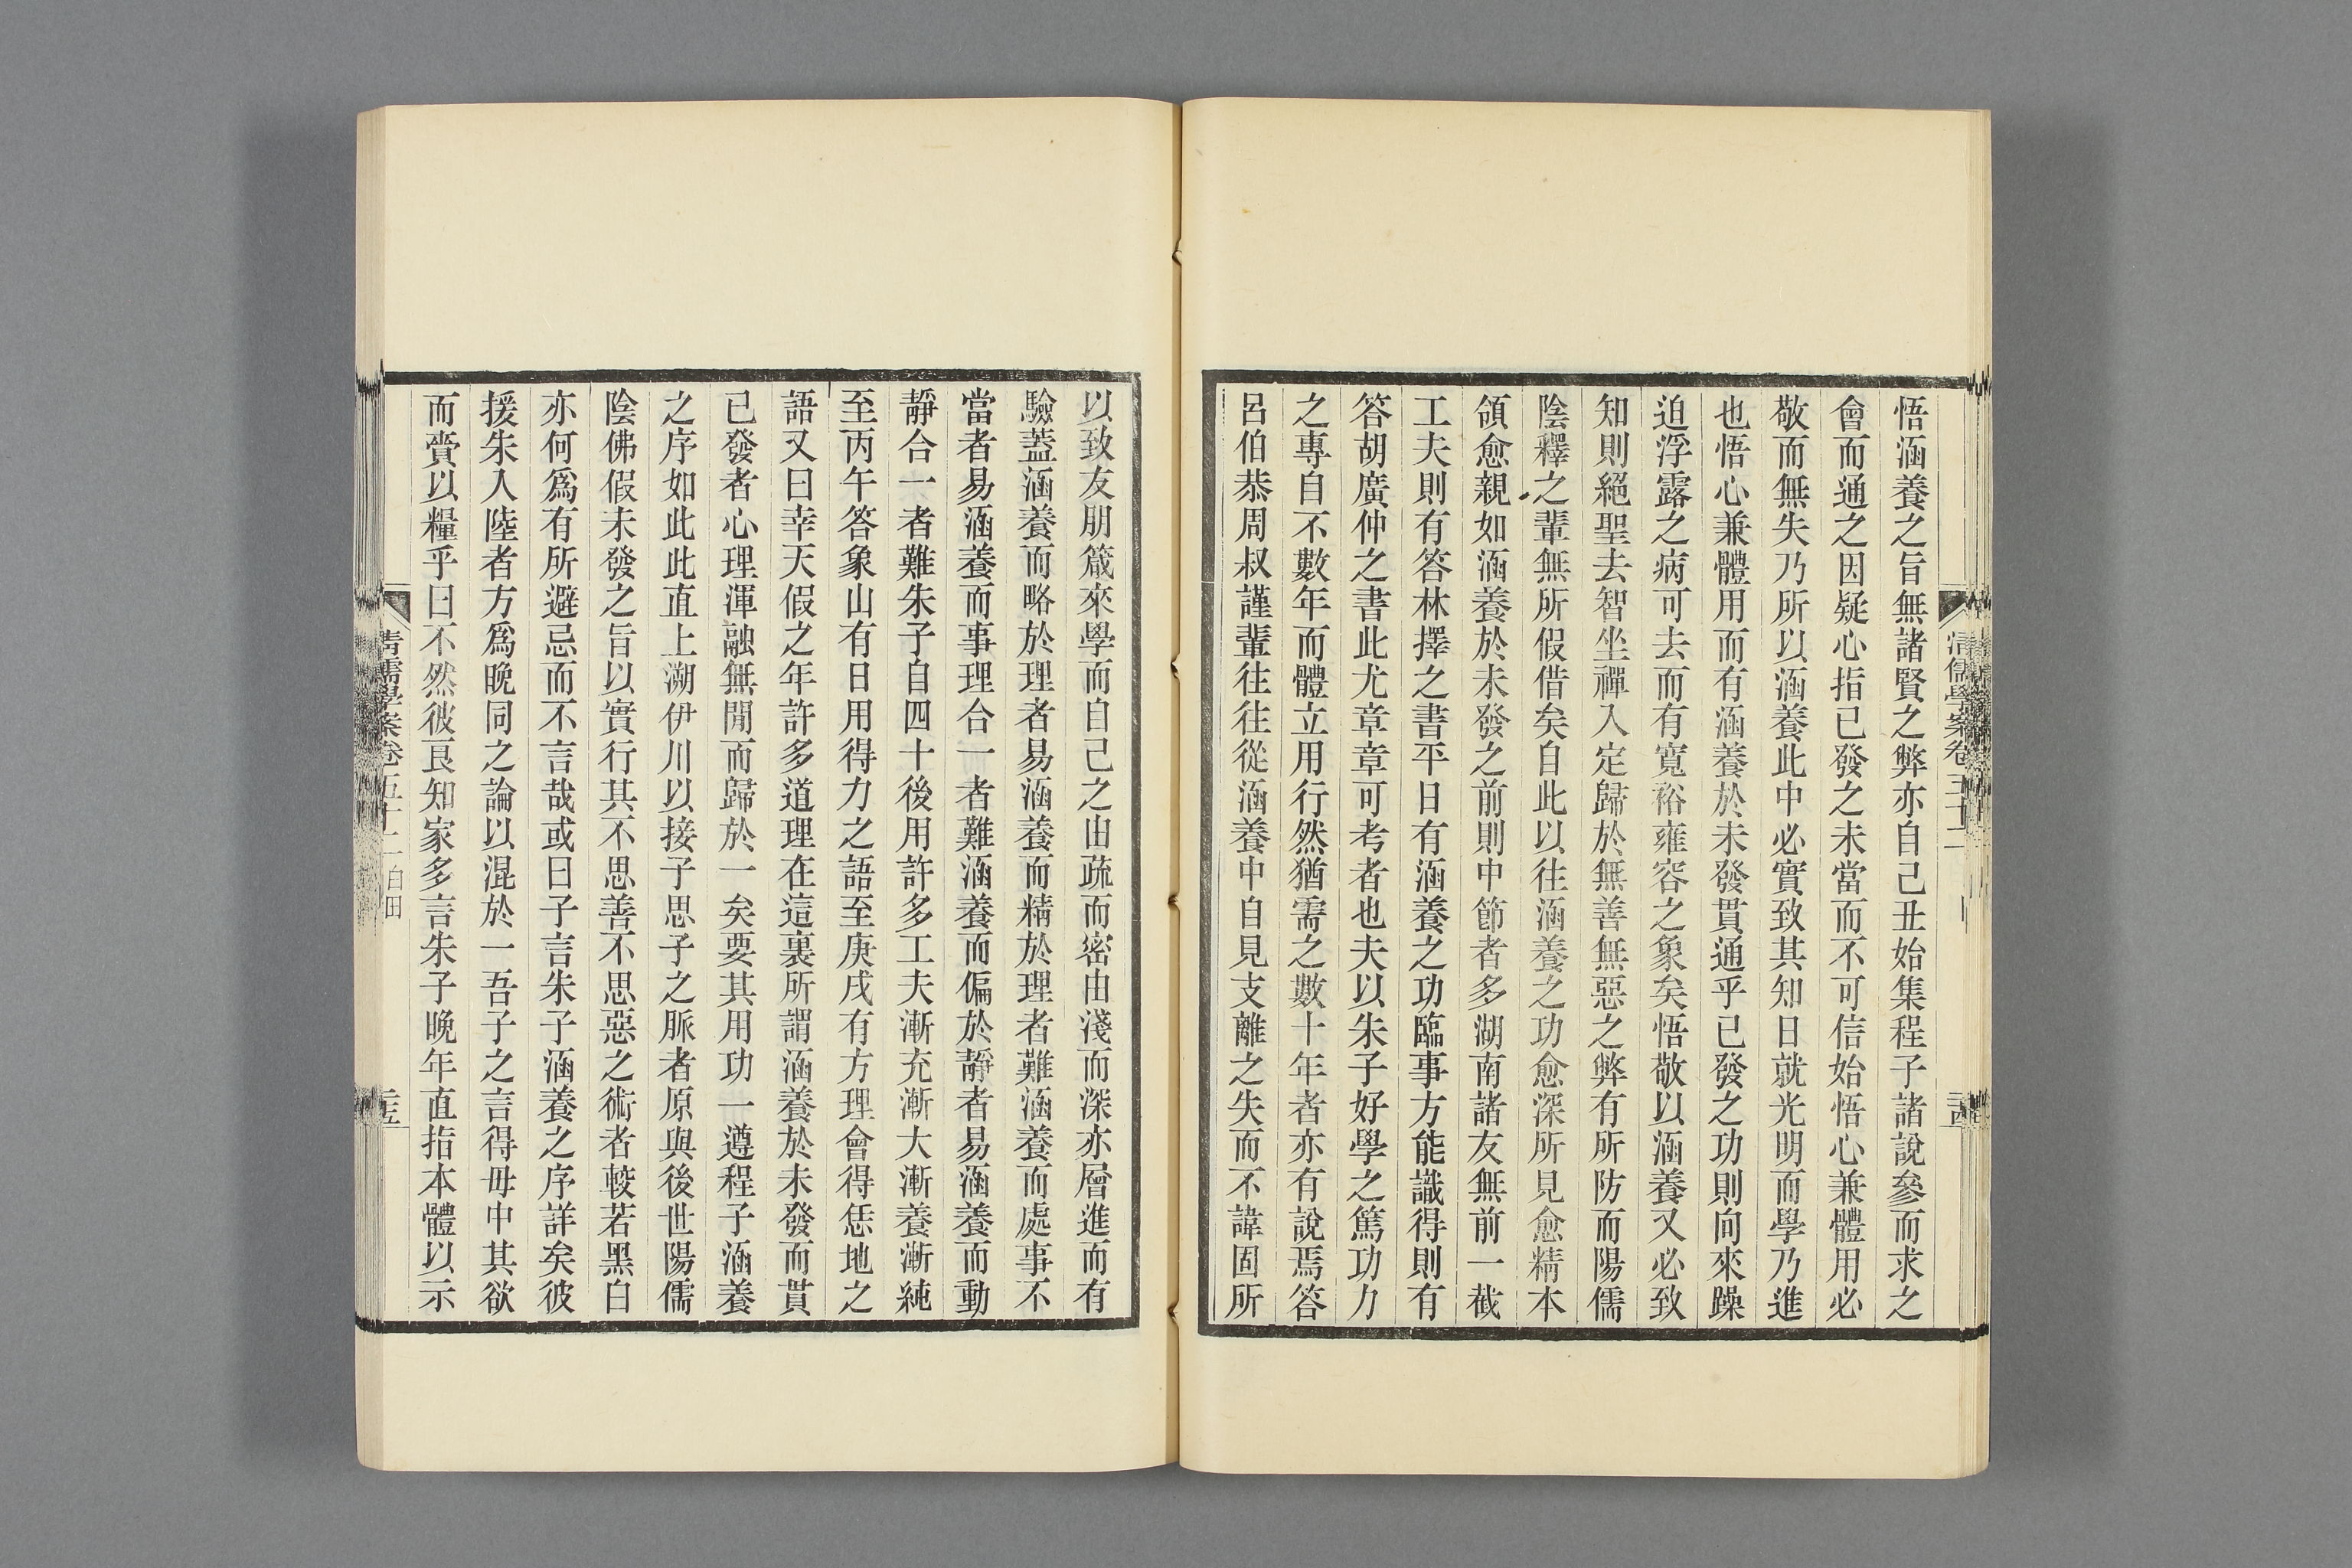 清儒學案卷五十二
悟涵養之旨無諸賢之弊亦自己丑始集程子諸說參而求之
會而通之因疑心指已發之未當而不可信始悟心兼體用必
敬而無失乃所以涵養此中必實致其知日就光明而學乃進
也悟心兼體用而有涵養於未發貫通乎已發之功則向來躁
迫浮露之病可去而有寬裕雍容之象矣悟敬以涵養又必致
知則絕聖去智坐禪入定歸於無善無惡之弊有所防而陽儒
陰釋之輩無所假借矣自此以往涵養之功愈深所見愈精本
領愈親如涵養於未發之前則中節者多湖南諸友無前一截
工夫則有答林擇之書平日有涵養之功臨事方能識得則有
答胡廣仲之書此尤章章可考者也夫以朱子好學之篤功力
之專自不數年而體立用行然猶需之數十年者亦有說焉答
呂伯恭周叔謹輩往往從涵養中自見支離之失而不諱固所
以致友朋箴來學而自己之由疏而密由淺而深亦層進而有
驗蓋涵養而略於理者易涵養而精於理者難涵養而處事不
當者易涵養而事理合一者難涵養而偏於靜者易涵養而動
靜合一者難朱子自四十後用許多工夫漸充漸大漸養漸純
至丙午答象山有日用得力之語至庚戌有方理會得恁地之
語又曰幸天假之年許多道理在這裏所謂涵養於未發而貫
已發者心理渾融無閒而歸於一矣要其用功一遵程子涵養
之序如此此直上溯伊川以接子思子之脈者原與後世陽儒
陰佛假未發之旨以實行其不思善不思惡之術者較若黑白
亦何爲有所避忌而不言哉或曰子言朱子涵養之序詳矣彼
援朱入陸者方爲晚同之論以混於一吾子之言得毋中其欲
而齎以糧乎曰不然彼良知家多言朱子晚年直指本體以示
清儒學案卷五十二 白田